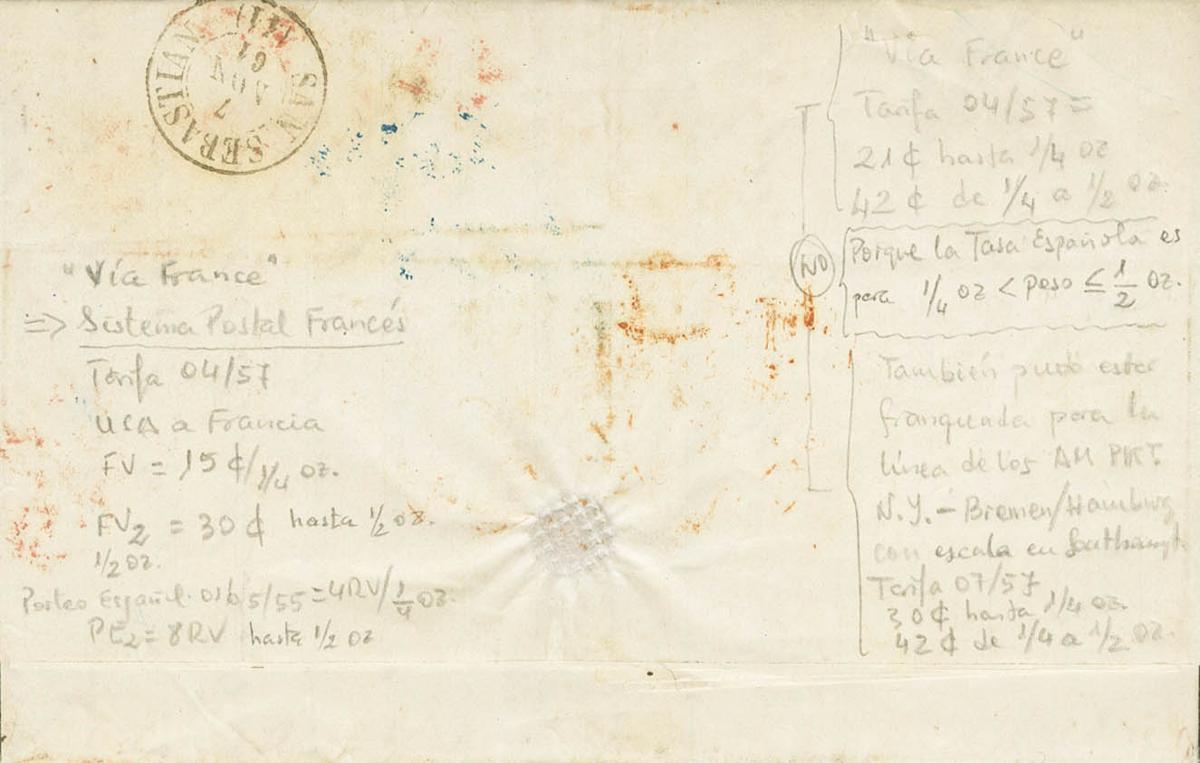 SAN SEBASTIAN
(11)
7
61
"Vía France"
⇒ Sistema Postal Francés
Tarifa 04/57
USA a Francia
FV = 15 ¢/1/4 oz.
FV2 = 30 ¢ hasta 1/2 oz.
1/2 oz.
Porteo Español 5/55 = 4RV/1/4 oz.
PE2 = 8RV hasta 1/2 oz
"Vía France"
Tarifa 04/57 =
21 ¢ hasta 1/4 oz
42 ¢ de 1/4 a 1/2 oz.
NO
Porque la Tasa Española es
para 1/4 oz < peso ≤ 1/2 oz.
También pudo estar
franqueada para la
línea de los AM PKT.
N.Y. - Bremen/Hamburg
con escala en Southampt.
Tarifa 07/57
30 ¢ hasta 1/4 oz.
42 ¢ de 1/4 a 1/2 oz.